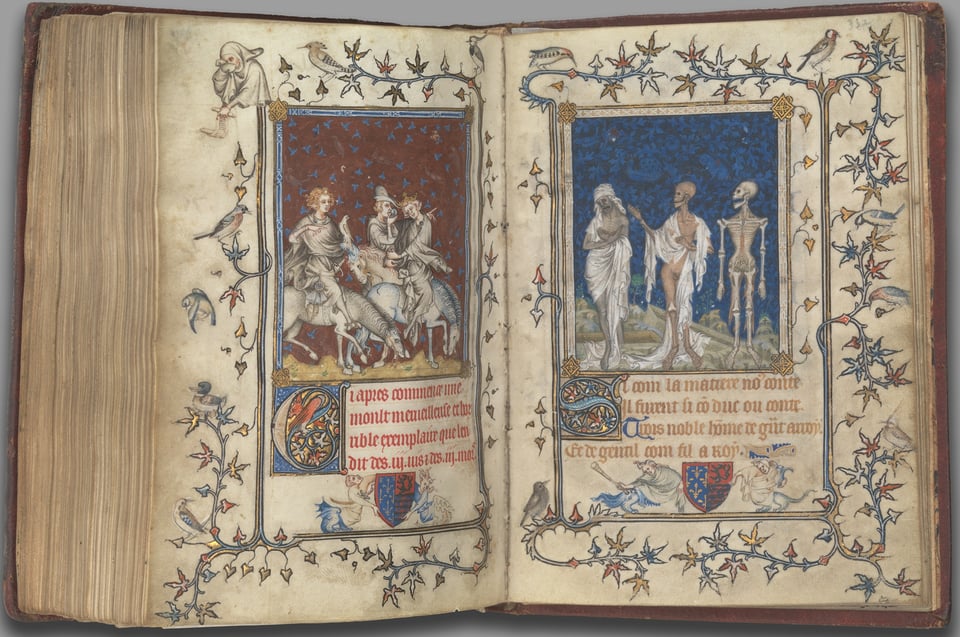 Ci apres commence une
moult merueilleuse et hor
rible exemplaire que len
dit des .iii. uis ⁊ des .iii. mors
Si com la matiere no᷒ conte
Il furent si cō duc ou conte.
Trois noble hōme de gñt arroy.
Et de gentil com fil a Roy.